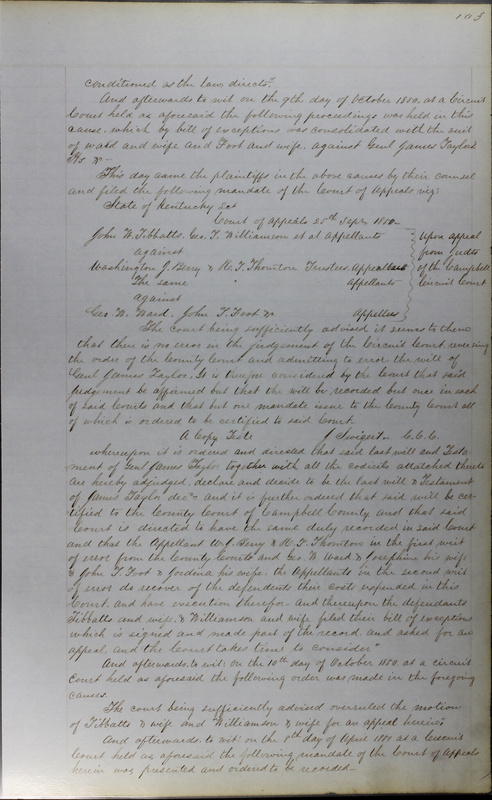 103
conditioned as the law directs."
And afterwards to wit on the 9th day of October 1850. at a Circuit
Court held as aforesaid the following proceedings was held in this
cause. which by bill of exceptions was consolidated with the suit
of Ward and wife and Foot and wife. against Genl James Taylors
This day came the plaintiffs in the above causes by their counsel
and filed the following mandate of the Court of Appeals viz:
State of Kentucky Sct
Court of appeals 25th Sept 1850—
John W. Tibbatts. Geo. T. Williamson et al Appellants
against
Washington J. Berry & R. T. Thornton Trustees. Appellees
The same " Appellants
against
Geo. W. Ward. John T. Foot &c Appellees
Upon appeal
from Judts
of the Campbell
Circuit Court
The court being sufficiently advised it seems to them
that there is no error in the judgement of the Circuit Court. reversing
the order of the County Court and admitting to error the will of
Genl James Taylor. It is therefore considered by the Court that said
Judgement be affirmed but that the will be recorded but once in each
of said Courts and that but one mandate issue to the County Court all
of which is ordered to be certified to said Court.
A Copy Teste J Swigert C.C.C.
whereupon it is ordered and directed that said last will and Testa-
ment of Genl James Taylor together with all the codicils attatched thereto
are hereby adjudged. declare and decide to be the last will & Testament
of James Taylor decd and it is further ordered that said will be cer-
tified to the County Court of Campbell County and that said
Court is directed to have the same duly recorded in said Court
and that the Appellant W. J. Berry & R. T. Thornton in the first writ
of error from the County Courts and Geo. W Ward & Josephine his wife
& John T. Foot & his wife. the Appellants in the second writ
of error do recover of the defendents their costs expended in this
Court. and have execution therefor. and thereupon the defendants
Tibbatts and wife. & Williamson and wife filed their bill of exceptions
which is signed and made part of the record. and asked for an
appeal. and the Court takes time to consider"
And afterwards. to wit: on the 10th day of October 1850. at a circuit
Court held as aforesaid the following order was made in the foregoing
causes.
The court being sufficiently advised overruled the motion
of Tibbatts & wife and Williamson & wife for an appeal herein"
And afterwards. to wit: on the 8th day of April 1851 at a Circuit
Court held as aforesaid the following, mandate of the Court of Appeals
herein was presented and ordered to be recorded—